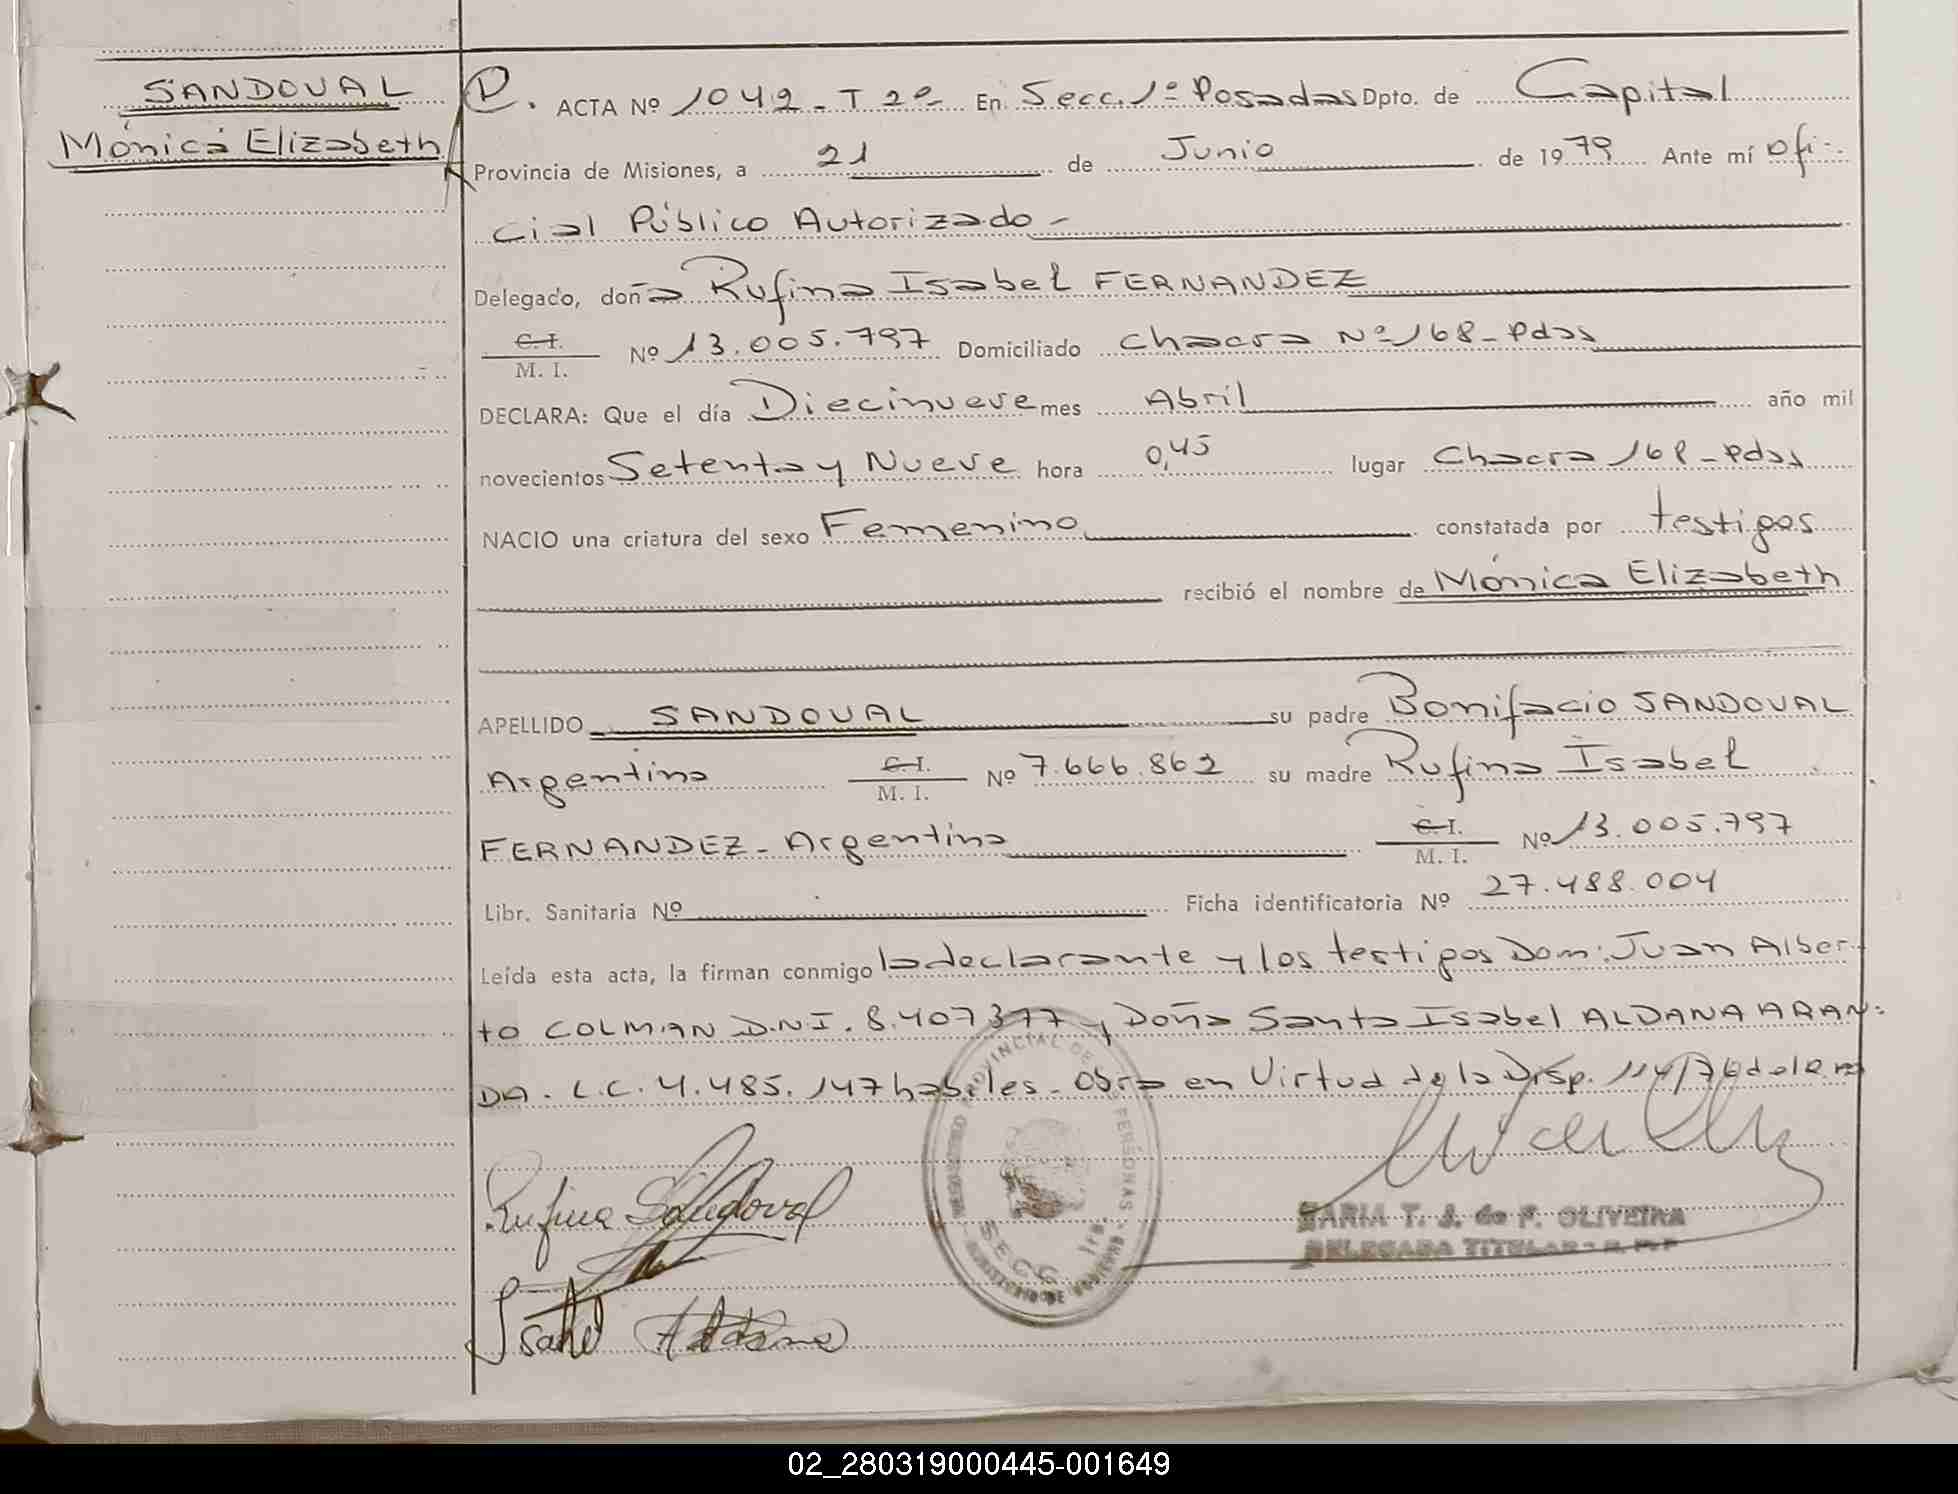 SANDOVAL
Mónica Elizabeth
ACTA Nº 1042 - T 2º - En Secc. 1º Posadas Dpto. de Capital
Provincia de Misiones, a 21 de Junio de 1979 Ante mí Ofi-
cial Público Autorizado -
Delegado, doña Rufina Isabel FERNANDEZ
C.I.
M. I. Nº 13.005.797 Domiciliado Chacra Nº 168 - Pdas
DECLARA: Que el día Diecinueve mes Abril año mil
novecientos Setenta y Nueve hora 0,45 lugar Chacra 168 - Pdas
NACIO una criatura del sexo Femenino constatada por testigos
recibió el nombre de Mónica Elizabeth
APELLIDO SANDOVAL su padre Bonifacio SANDOVAL
Argentino C.I.
M. I. Nº 7.666.862 su madre Rufina Isabel
FERNANDEZ - Argentina C.I.
M. I. Nº 13.005.797
Libr. Sanitaria Nº Ficha identificatoria Nº 27.488.004
Leída esta acta, la firman conmigo la declarante y los testigos Don: Juan Alber-
to COLMAN D.N.I. 8.407377 y Doña Santa Isabel ALDANA ARAN-
DA. L.C. 4.485.147 habiles - Obra en Virtud de la Disp. 114/76
Rufina Sandoval
Isabel Aldana
PROVINCIAL DE PERSONAS
SECC. 1ra.
MARIA T. J. de F. OLIVEIRA
DELEGADA TITULAR
02_280319000445-001649